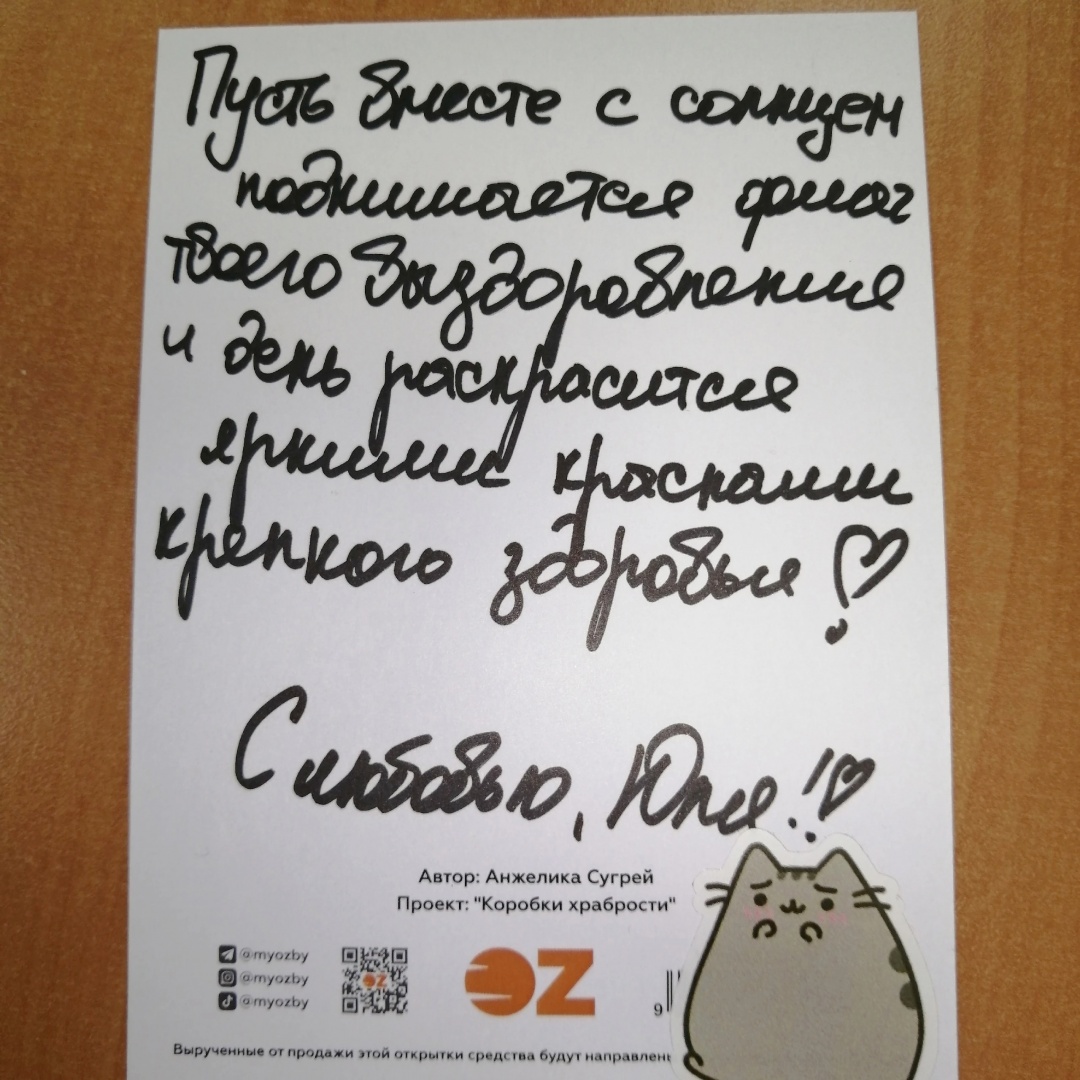 Пусть вместе с солнцем
поднимается флаг
твоего выздоровления
и день раскрасится
яркими красками
крепкого здоровья!
С любовью, Юля!!
Автор: Анжелика Сугрей
Проект: "Коробки храбрости"
@myozby
@myozby
@myozby
OZ
OZ
9
Вырученные от продажи этой открытки средства будут направлены